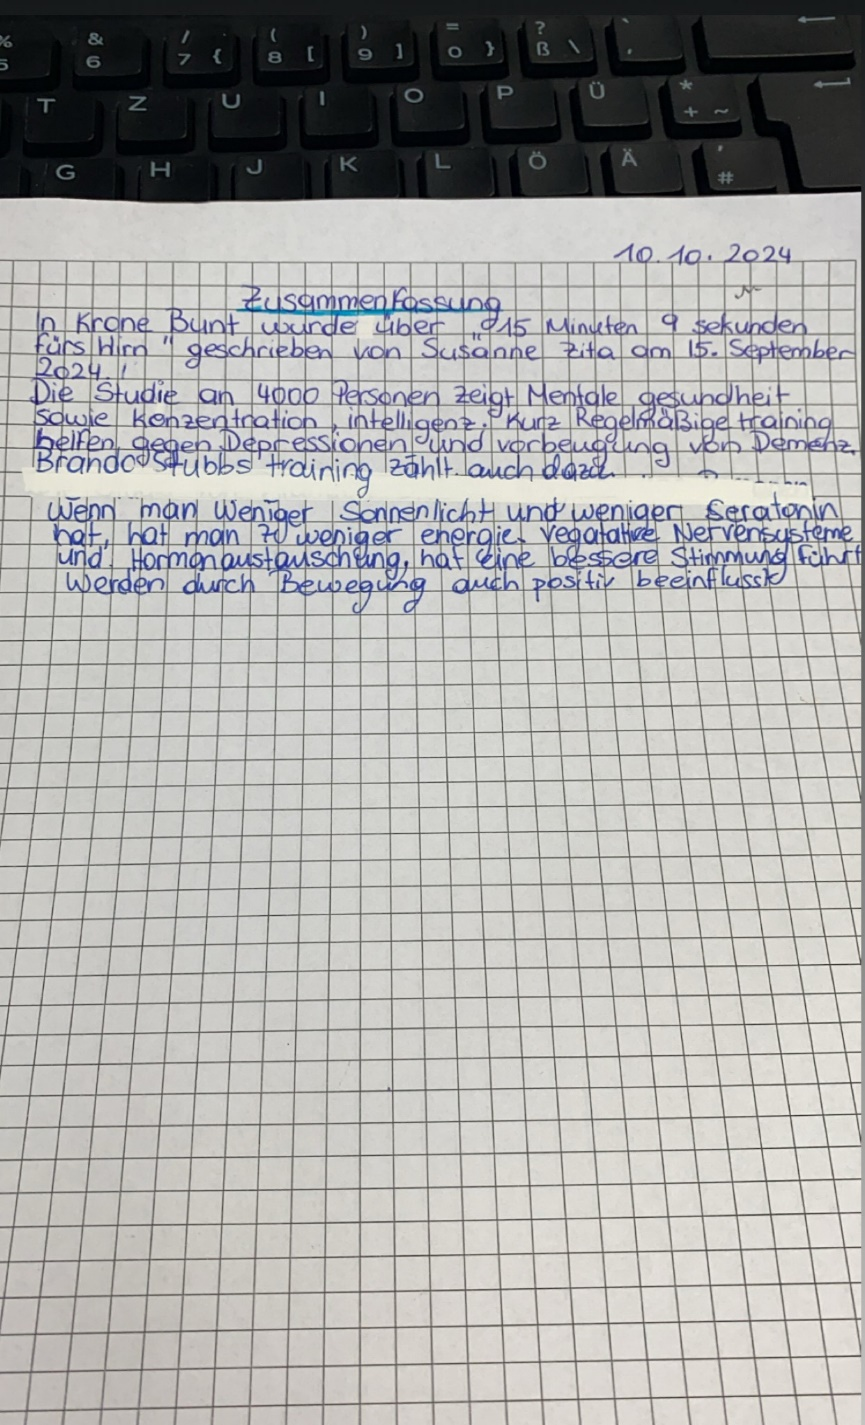 % 5
& 6
/ 7 {
( 8 [
) 9 ]
= 0 }
? ß \
T Z U I O P Ü * + ~
G H J K L Ö Ä ' #
10.10.2024
Zusammenfassung
In Krone Bunt wurde über „ 15 Minuten 9 sekunden
fürs Hirn " geschrieben von Susanne Zita am 15. September
2024.
Die Studie an 4000 Personen zeigt Mentale gesundheit
sowie Konzentration, intelligenz. Kurz Regelmäßige training
helfen gegen Depressionen und vorbeugung von Demenz.
Brando Stubbs training zählt auch dazu.
Wenn man weniger Sonnenlicht und weniger Seratonin
hat, hat man zu weniger energie. vegatative Nervensysteme
und Hormonaustauschung, hat eine blessere Stimmung führt
Werden durch Bewegung auch positiv beeinflusst